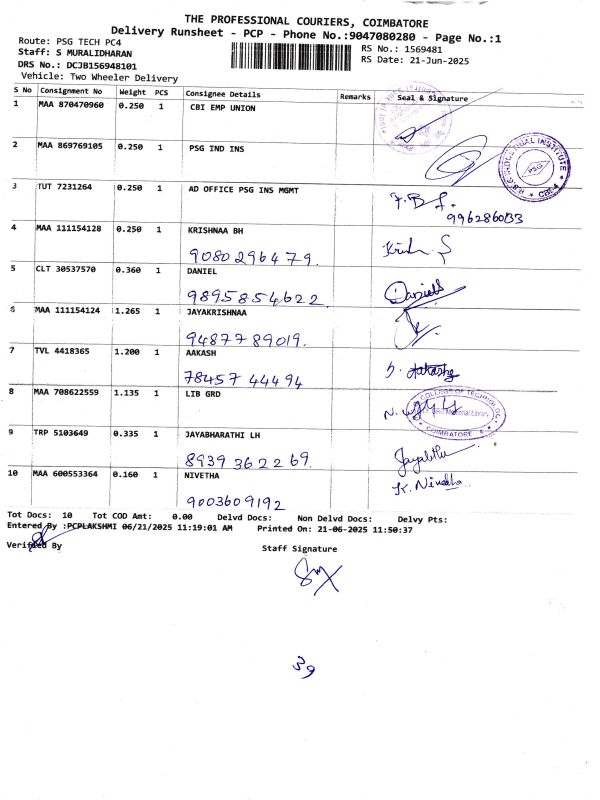 THE PROFESSIONAL COURIERS, COIMBATORE
Delivery Runsheet - PCP - Phone No.:9047080280 - Page No.:1
Route: PSG TECH PC4
RS No.: 1569481
Staff: S MURALIDHARAN
RS Date: 21-Jun-2025
DRS No.: DCJB156948101
Vehicle: Two Wheeler Delivery
S No Consignment No Weight PCS Consignee Details Remarks Seal & Signature
1 MAA 870470960 0.250 1 CBI EMP UNION
2 MAA 869769105 0.250 1 PSG IND INS
P.S.G INDUSTRIAL INSTITUTE
PSG
CBE-4
3 TUT 7231264 0.250 1 AD OFFICE PSG INS MGMT
9962860133
4 MAA 111154128 0.250 1 KRISHNAA BH
9080296479.
5 CLT 30537570 0.360 1 DANIEL
9895854622. Daniels
6 MAA 111154124 1.265 1 JAYAKRISHNAA
9487789019.
7 TVL 4418365 1.200 1 AAKASH
78457 44494
8 MAA 708622559 1.135 1 LIB GRD
COLLEGE OF TECHNOLOGY
Memorial Library
COIMBATORE
9 TRP 5103649 0.335 1 JAYABHARATHI LH
8939 362269.
10 MAA 600553364 0.160 1 NIVETHA
9003609192
Tot Docs: 10 Tot COD Amt: 0.00 Delvd Docs: Non Delvd Docs: Delvy Pts:
Entered By :PCPLAKSHMI 06/21/2025 11:19:01 AM Printed On: 21-06-2025 11:50:37
Verified By
Staff Signature
39